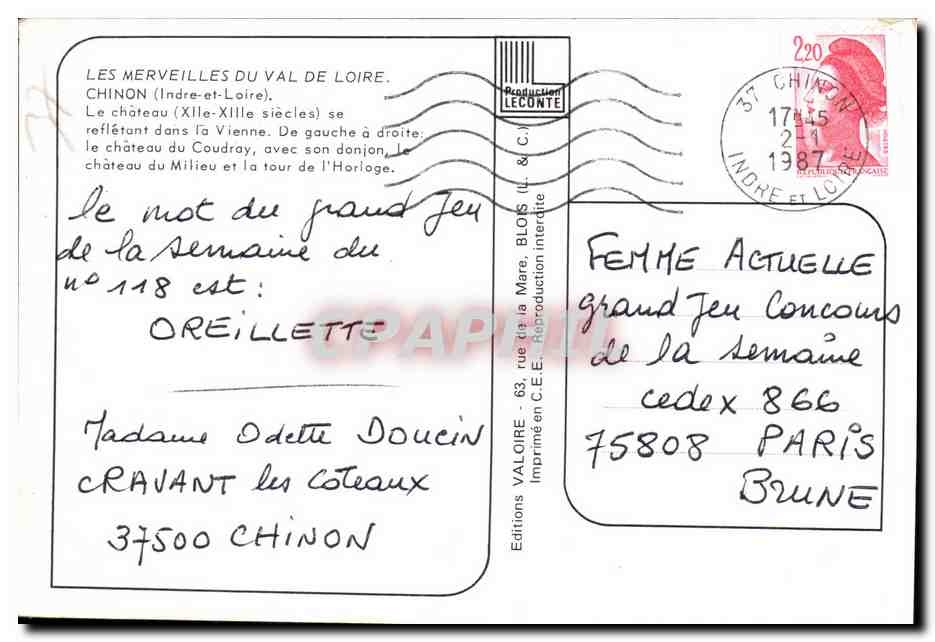 LES MERVEILLES DU VAL DE LOIRE.
CHINON (Indre-et-Loire).
Le château (XIIe-XIIIe siècles) se
reflétant dans la Vienne. De gauche à droite:
le château du Coudray, avec son donjon, le
château du Milieu et la tour de l'Horloge.
le mot du grand Jeu
de la semaine du
n° 118 est :
OREILLETTE
Madame Odette DOUCIN
CRAVANT les Coteaux
37500 CHINON
Production
LECONTE
Editions VALOIRE - 63, rue de la Mare, BLOIS (L. & C.)
Imprimé en C.E.E. Reproduction interdite
2,20
REPUBLIQUE FRANÇAISE
37 CHINON
17H45
2-1
1987
INDRE ET LOIRE
FEMME ACTUELLE
grand Jeu Concours
de la semaine
cedex 866
75808 PARIS
BRUNE
CPAPHIL